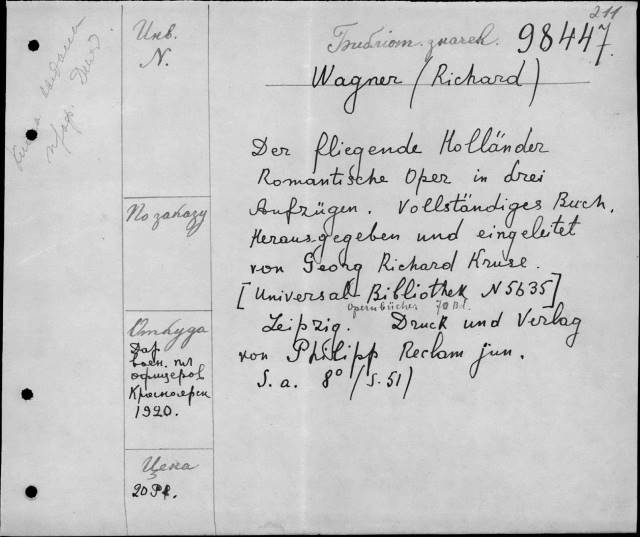 211
Библіот. значек. 98447.
Wagner (Richard)
Der fliegende Holländer
Romantische Oper in drei
Aufzügen. Vollständiges Buch.
Herausgegeben und eingeleitet
von Georg Richard Kruse.
[Universal-Bibliothek N 5635]
Opernbücher 70 Bd.
Leipzig. Druck und Verlag
von Philipp Reclam jun.
S. a. 8° (S. 51)
Инв.
N.
По заказу
Откуда
Дар
воен. пл
офицеров
Красноярск
1920.
Цена
20 Pf.
выдана
проф.